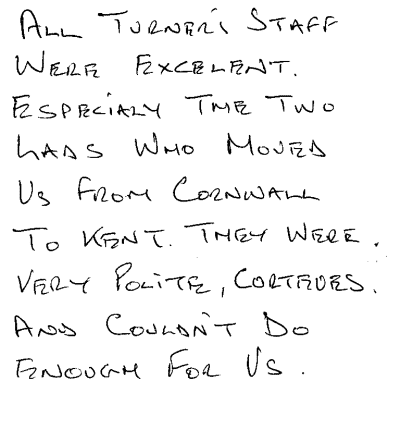 ALL TURNER'S STAFF
WERE EXCELENT.
ESPECIALY THE TWO
LADS WHO MOVED
US FROM CORNWALL
TO KENT. THEY WERE.
VERY POLITE, CORTEUES.
AND COULDN'T DO
ENOUGH FOR US.